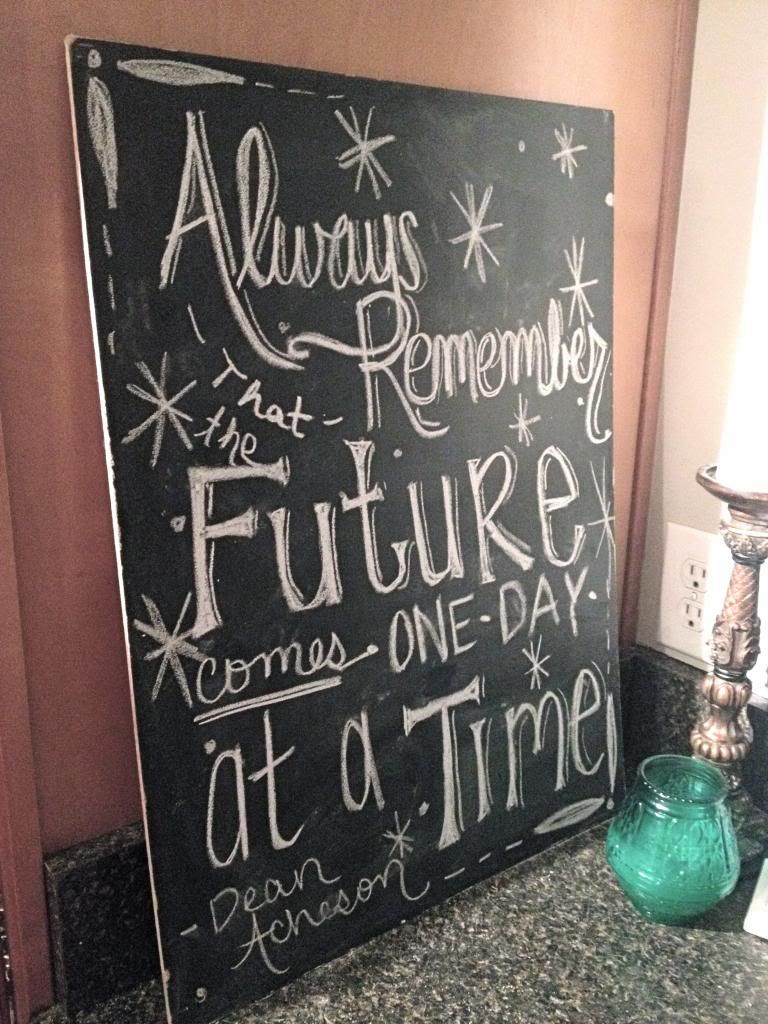 Always
Remember
That
the
Future
comes ONE-DAY
at a Time
- Dean
Acheson